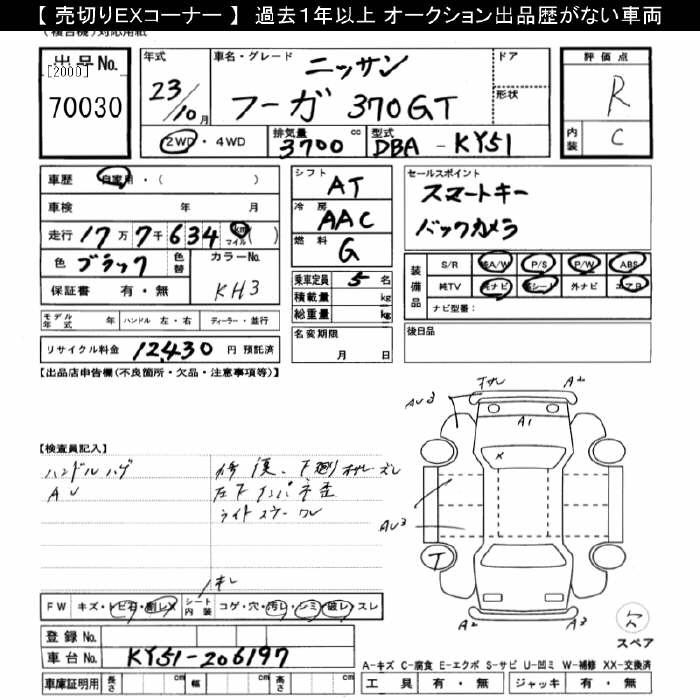 【 売切りEXコーナー 】 過去1年以上 オークション出品歴がない車両
(複合機)対応用紙
出品No.
[2000]
70030
年式
23/10月
車名・グレード
ニッサン
フーガ 370GT
ドア
形状
評価点
R
内装 C
2WD・4WD
排気量 3700 cc
型式 DBA - KY51
車歴 自家用・( )
車検 年 月
走行 17万7千634 km マイル ( )
色 ブラック 色替 カラーNo. KH3
保証書 有・無
シフト AT
冷房 AAC
燃料 G
乗車定員 5 名
積載量 kg
総重量 kg
名変期限
月 日
セールスポイント
スマートキー
バックカメラ
装備品
S/R 純A/W P/S P/W ABS
純TV 純ナビ 革シート 外ナビ エアB
ナビ型番:
後日品
モデル年式 年 ハンドル 左・右 ディーラー・並行
リサイクル料金 12,430 円 預託済
【出品店申告欄(不良箇所・欠品・注意事項等)】
【検査員記入】
ハンドルハゲ
AU
修復、下廻りオサレ ズレ
左下インパネ歪
ライトステー ワレ
キレ
FW キズ・トビ石・割レX シート内装 コゲ・穴・汚レ・シミ・破レ・スレ
登録No.
車台No. KY51-206197
車庫証明用 長さ cm 幅 cm 高さ cm
オサレ
A2
AU3
A1
X
AU3
T
A2
A3
欠
スペア
A-キズ C-腐食 E-エクボ S-サビ U-凹ミ W-補修 XX-交換済
工具 有・無 ジャッキ 有・無